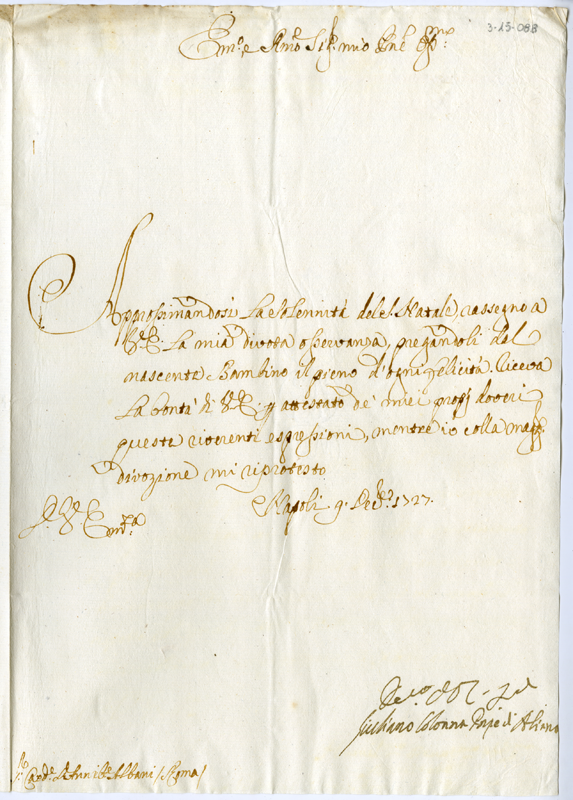 3-15-088
Em.o e Rmo Sig.r mio
Approssimandosi la solennità del S. Natale, rassegno a
V.E. la mia divota osservanza, pregandoli dal
nascente Bambino il pieno d'ogni felicità. Riceva
la bontà di V.E. p attestato de' miei proprj doveri
queste riverenti espressioni, mentre io colla magg.e
divozione mi riprotesto
Napoli 9. Dec.e 1727.
Di V. Em.za
Giuliano Colonna di Aliano
Card.e Annib.e Albani (Roma)